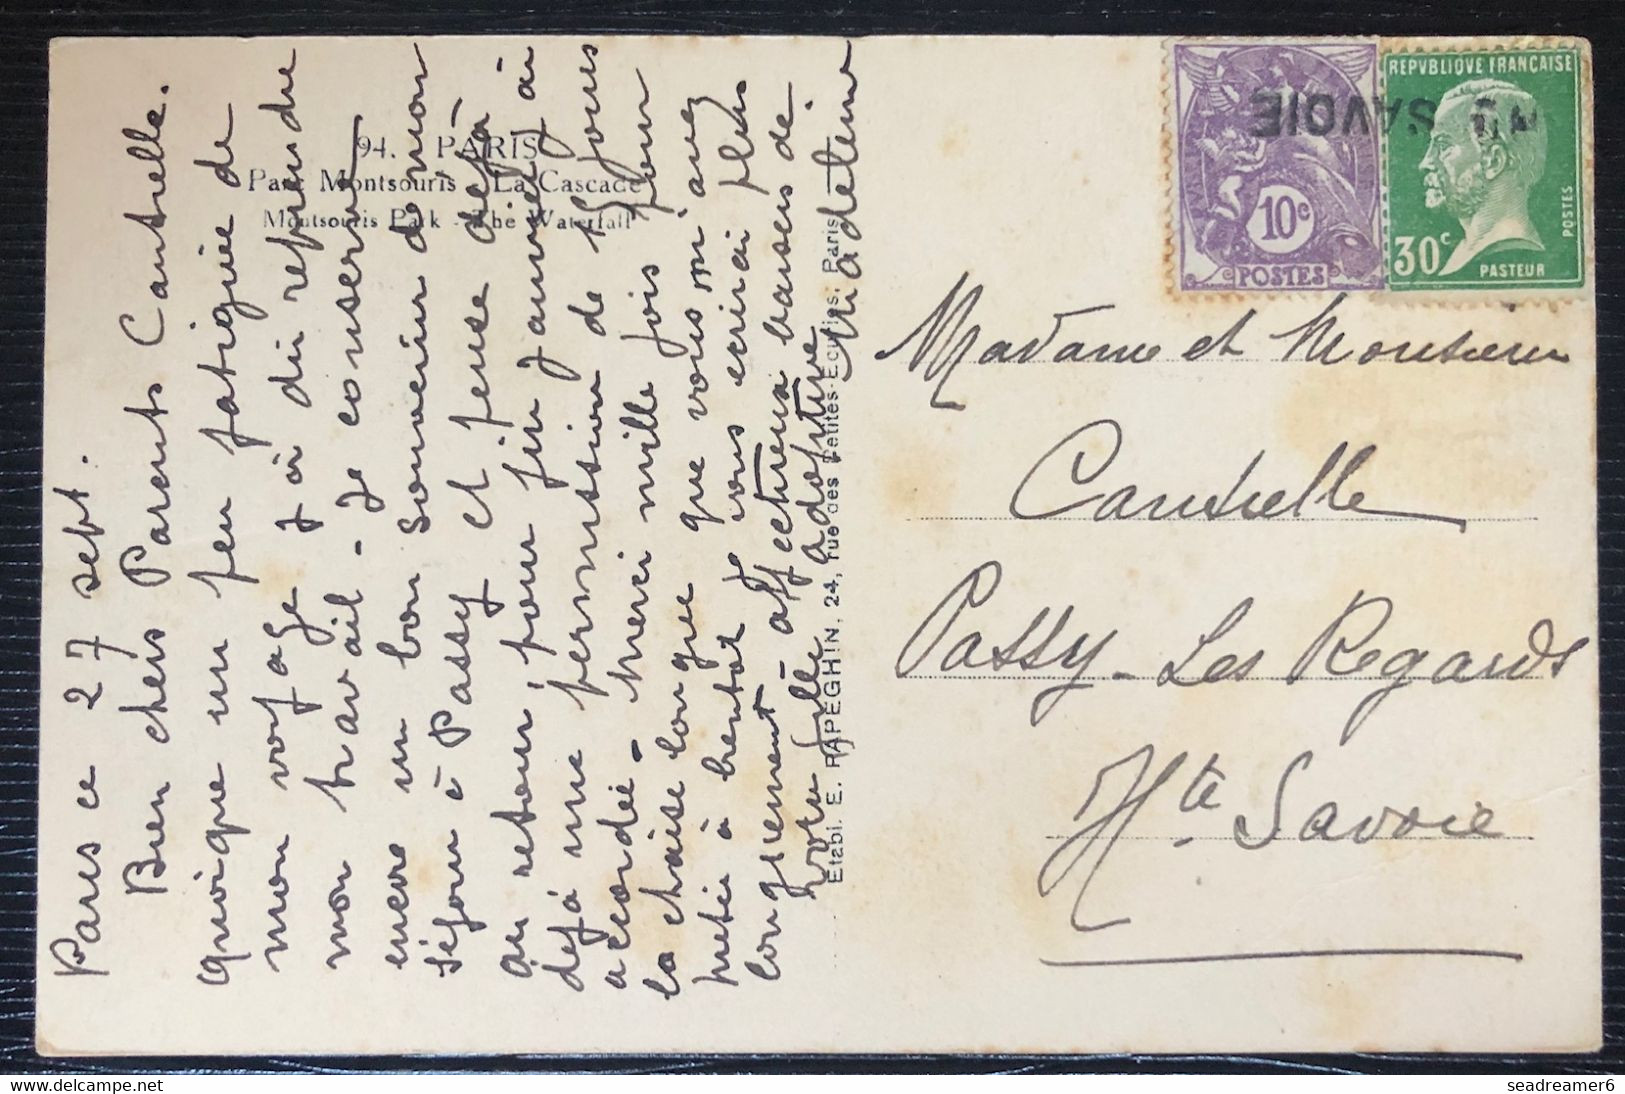 Paris ce 27 sept.
Bien chers Parents Cantuelle.
quoique un peu fatiguée de
mon voyage j'ai dû reprendre
mon travail - Je conserve
encore un bon souvenir de mon
séjour à Passy et pense déjà
au retour, pour fin janvier j'ai
déjà une permission de 8 jours
accordée - Merci mille fois pour
la chaise longue que vous m'avez
prêtée à bientot je vous ecrirai plus
longuement affectueux baisers de
votre fille adoptive
Madeleine
94. PARIS
Parc Montsouris - La Cascade
Montsouris Park - The Waterfall
Etabl. E. PAPEGHIN, 24, rue des Petites-Ecuries, Paris
10c
POSTES
REPVBLIQVE FRANCAISE
30c
PASTEUR
POSTES
SAVOIE
Madame et Monsieur
Cantuelle
Passy - Les Regards
Hte Savoie
seadreamer6